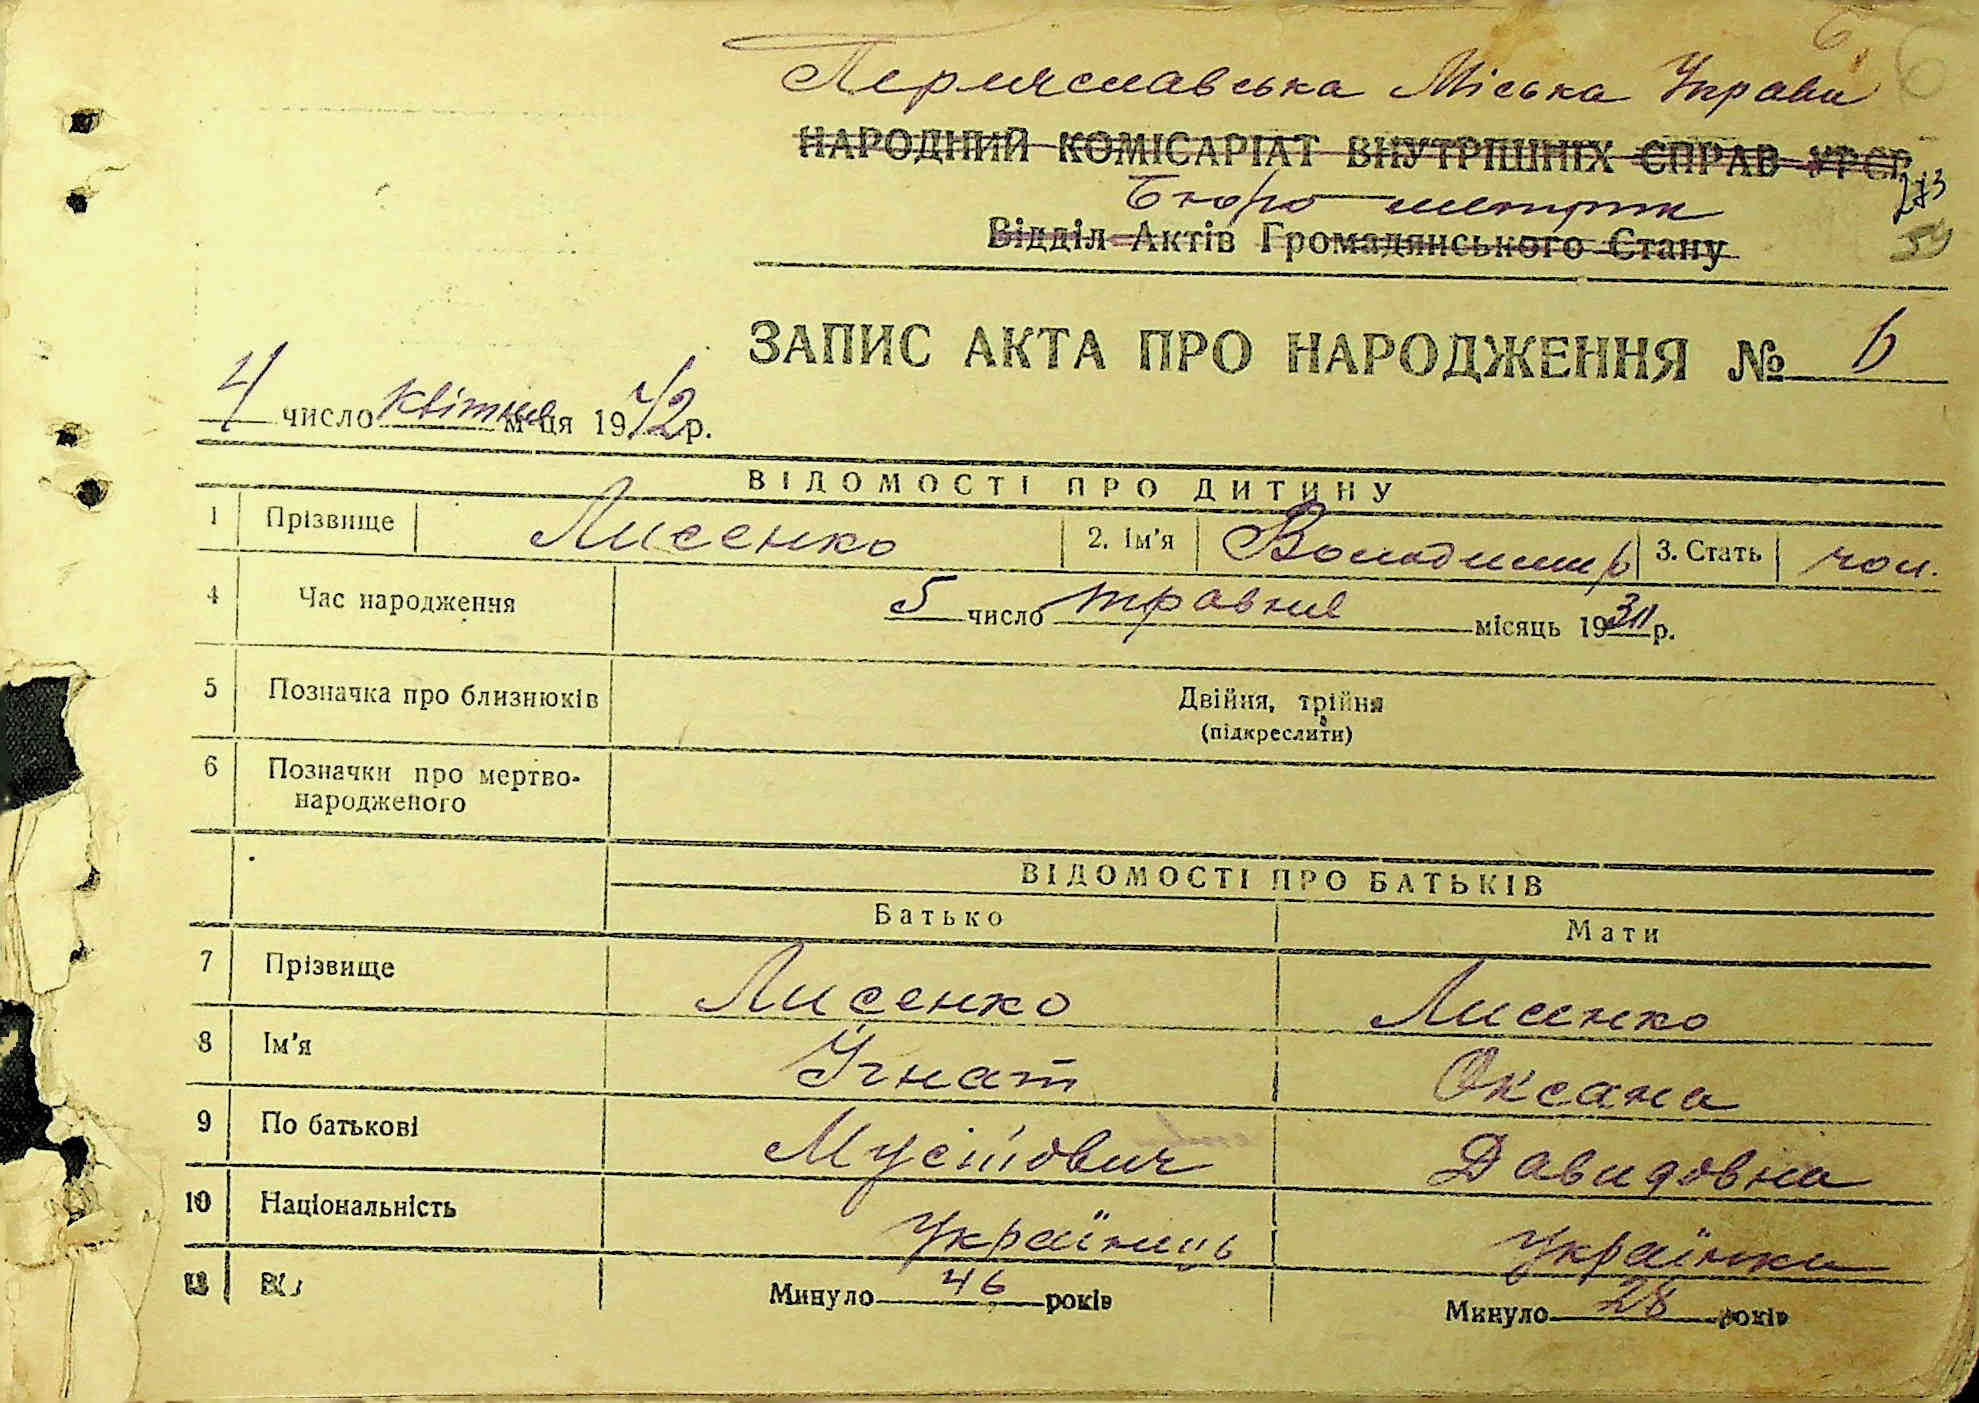 6
Переяславська Міська Управа
НАРОДНИЙ КОМІСАРІАТ ВНУТРІШНІХ СПРАВ УРСР
Бюро метрик
Відділ Актів Громадянського Стану
ЗАПИС АКТА ПРО НАРОДЖЕННЯ № 6
4 число квітня м-ця 1942 р.
ВІДОМОСТІ ПРО ДИТИНУ
1 Прізвище Лисенко 2. Ім'я Володимир 3. Стать чол.
4 Час народження 5 число травня місяць 19 р.
5 Позначка про близнюків Двійня, трійня
(підкреслити)
6 Позначки про мертво-
народженого
ВІДОМОСТІ ПРО БАТЬКІВ
Батько Мати
7 Прізвище Лисенко Лисенко
8 Ім'я Ігнат Оксана
9 По батькові Давидовна
10 Національність Українець Українка
Минуло 46 років Минуло 28 років